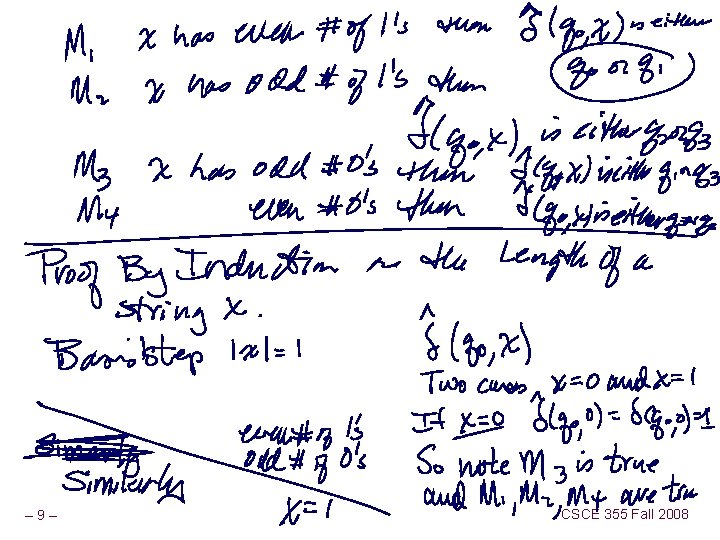 M1 x has even # of 1's then δ̂(q0,x) is either
q0 or q1
M2 x has odd # of 1's then
δ̂(q0,x) is either q2 or q3
M3 x has odd # 0's then δ̂(q0,x) is either q1 or q3
M4 even # 0's then δ̂(q0,x) is either
Proof By Induction on the Length of a
string x.
Basis step |x| = 1 δ̂(q0,x)
Two cases, x=0 and x=1
If x=0 δ̂(q0,0) = δ(q0,0)=1
even # of 1's
odd # of 0's
Similarly
x=1
So note M3 is true
and M1, M2, M4 are tru
– 9 –
CSCE 355 Fall 2008